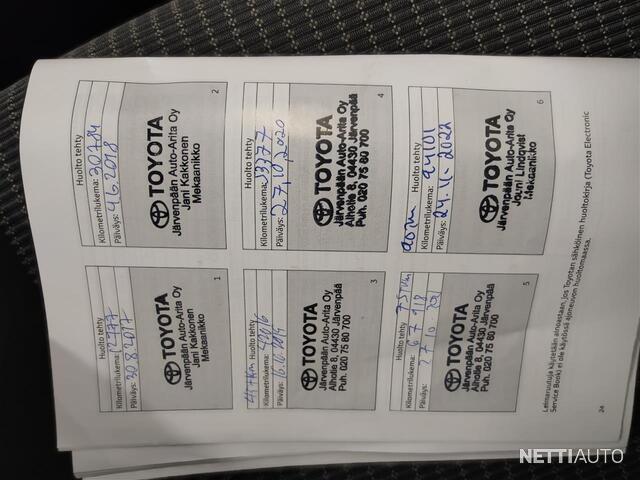 Huolto tehty
Kilometrilukema:
Päiväys: 30.8.2017
TOYOTA
Järvenpään Auto-Arita Oy
Jani Kakkonen
Mekaanikko
1
Huolto tehty
Kilometrilukema: 30784
Päiväys: 4.6.2018
TOYOTA
Järvenpään Auto-Arita Oy
Jani Kakkonen
Mekaanikko
2
Huolto tehty
Kilometrilukema:
Päiväys:
TOYOTA
Järvenpään Auto-Arita Oy
Alhotie 8, 04430 Järvenpää
Puh. 020 75 80 700
3
Huolto tehty
Kilometrilukema:
Päiväys: 27.10.2020
TOYOTA
Järvenpään Auto-Arita Oy
Alhotie 8, 04430 Järvenpää
Puh. 020 75 80 700
4
Huolto tehty
Kilometrilukema:
Päiväys:
TOYOTA
Järvenpään Auto-Arita Oy
Alhotie 8, 04430 Järvenpää
Puh. 020 75 80 700
5
Huolto tehty
Kilometrilukema:
Päiväys: 24.11.2022
TOYOTA
Järvenpään Auto-Arita Oy
Jouni Lindqvist
Mekaanikko
6
Leimaruutuja käytetään ainoastaan, jos Toyotan sähköinen huoltokirja (Toyota Electronic
Service Book) ei ole käytössä ajoneuvon huoltomaassa.
24
NETTIAUTO